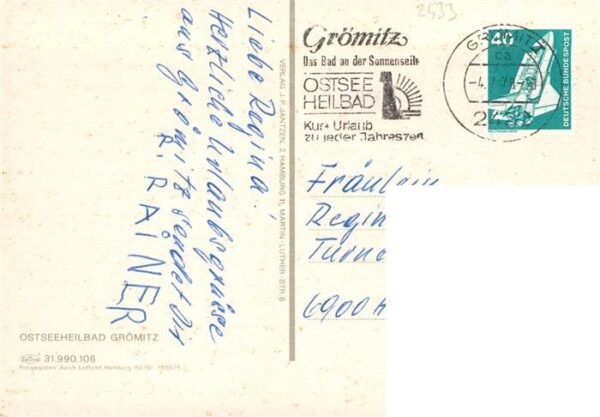 2533
Grömitz
Das Bad an der Sonnenseite
OSTSEE
HEILBAD
Kur + Urlaub
zu jeder Jahreszeit
GRÖMITZ
ca
40
DEUTSCHE BUNDESPOST
Liebe Regina!
Herzliche Urlaubsgrüsse
aus Grömitz sendet Dir
RAINER
VERLAG J. P. JANTZEN, 2 HAMBURG 11, MARTIN-LUTHER-STR. 8
Fräulein
Regin
Turne
6900
OSTSEEHEILBAD GRÖMITZ
31.990.106
Freigegeben durch Luftamt Hamburg